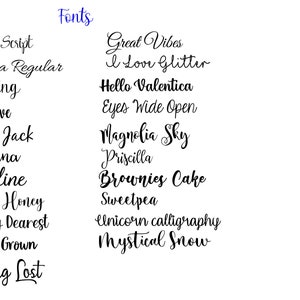 Fonts
Script
a Regular
ng
ve
Jack
na
line
Honey
y Dearest
Grown
g Lost
Great Vibes
I Love Glitter
Hello Valentica
Eyes Wide Open
Magnolia Sky
Priscilla
Brownies Cake
Sweetpea
Unicorn calligraphy
Mystical Snow